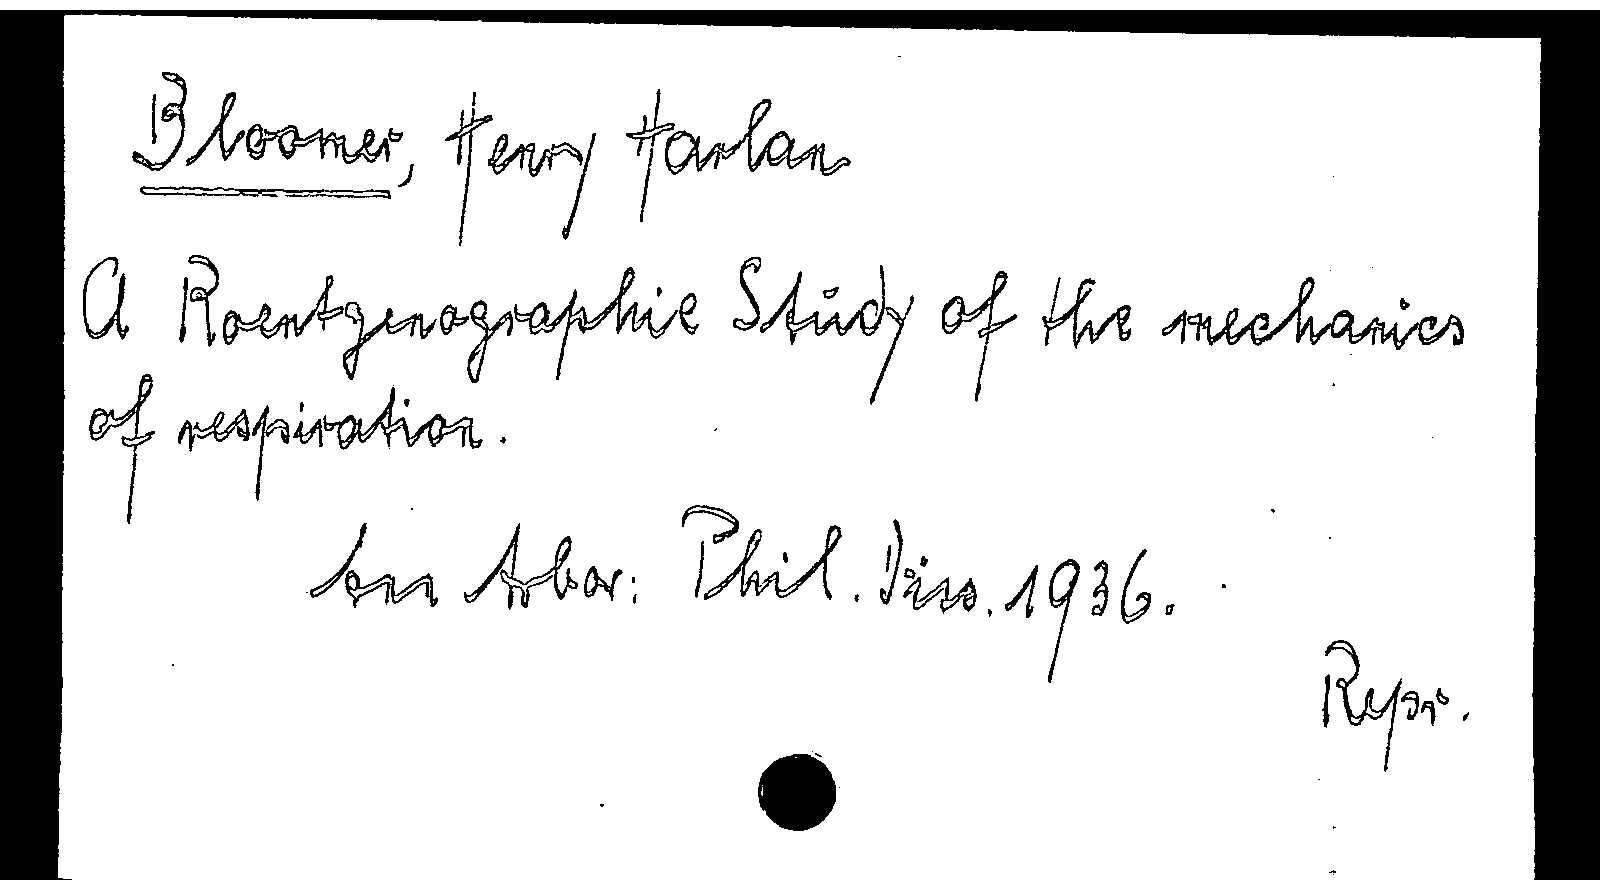 Bloomer, Henry Harlan
A Roentgenographic Study of the mechanics
of respiration.
Ann Arbor: Phil. Diss. 1936.
Repr.